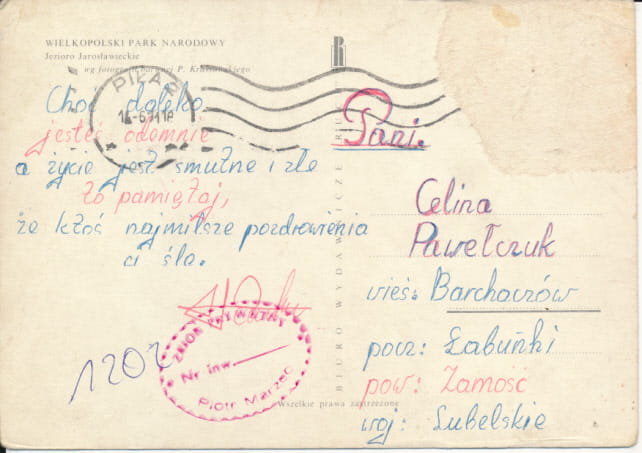 WIELKOPOLSKI PARK NARODOWY
Jezioro Jarosławieckie
wg fotografii barwnej P. Krassowskiego
PIŁA
Choć daleko
jesteś odemnie
a życie jest smutne i złe
to pamiętaj,
że ktoś najmilsze pozdrowienia
ci śle.
1202
ZBIÓR PRYWATNY
Nr inw.
Piotr Marzec
BIURO WYDAWNICZE RUCH
Wszelkie prawa zastrzeżone
Pani.
Celina
Pawełczuk
wieś: Barchaczów
pocz: Łabuńki
pow: Zamość
woj: Lubelskie